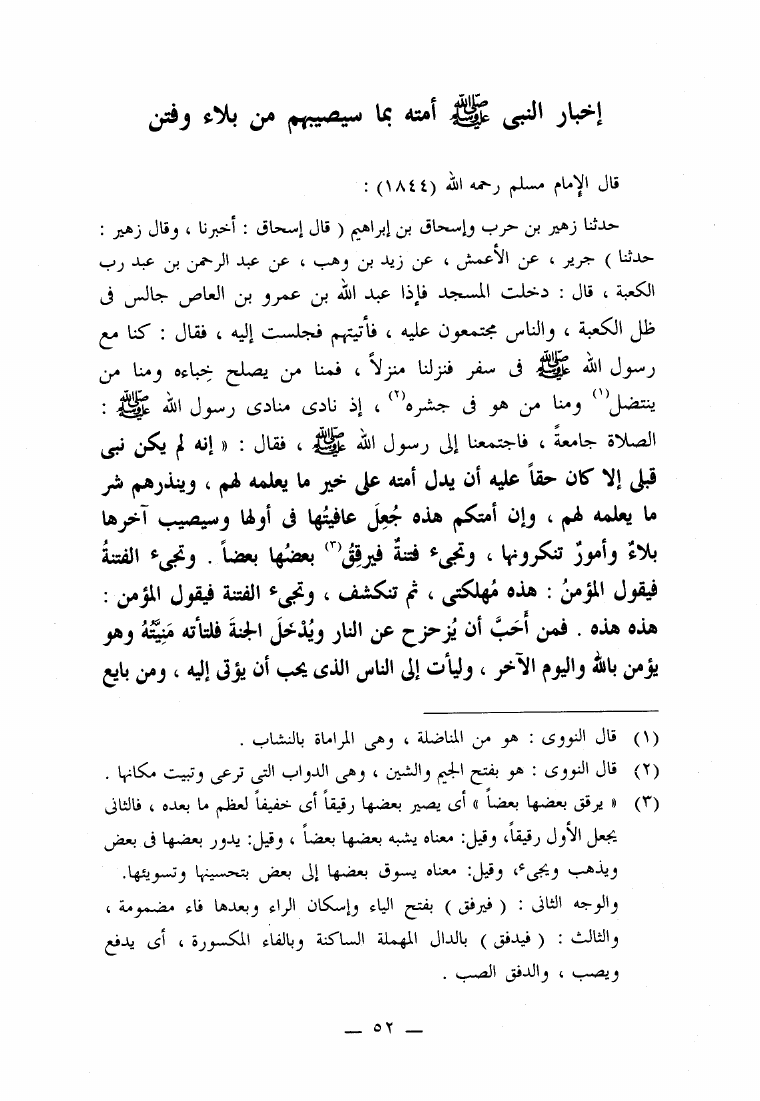 إخبار النبى ﷺ أمته بما سيصيبهم من بلاء وفتن
قال الإمام مسلم رحمه الله (١٨٤٤) :
حدثنا زهير بن حرب وإسحاق بن إبراهيم ( قال إسحاق : أخبرنا ، وقال زهير :
حدثنا ) جرير ، عن الأعمش ، عن زيد بن وهب ، عن عبد الرحمن بن عبد رب
الكعبة ، قال : دخلت المسجد فإذا عبد الله بن عمرو بن العاص جالس فى
ظل الكعبة ، والناس مجتمعون عليه ، فأتيتهم فجلست إليه ، فقال : كنا مع
رسول الله ﷺ فى سفر فنزلنا منزلاً ، فمنا من يصلح خِباءه ومنا من
ينتضل(١) ومنا من هو فى جشره(٢) ، إذ نادى منادى رسول الله ﷺ :
الصلاة جامعةً ، فاجتمعنا إلى رسول الله ﷺ ، فقال : « إنه لم يكن نبى
قبلى إلا كان حقاً عليه أن يدل أمته على خير ما يعلمه لهم ، وينذرهم شر
ما يعلمه لهم ، وإن أمتكم هذه جُعِلَ عافيتُها فى أولها وسيصيب آخرها
بلاءٌ وأمورٌ تنكرونها ، وتجىء فتنةٌ فيرقِقُ(٣) بعضُها بعضاً . وتجىء الفتنةُ
فيقول المؤمنُ : هذه مُهلكتى ، ثم تنكشف ، وتجىء الفتنة فيقول المؤمن :
هذه هذه . فمن أَحَبَّ أن يُزحزح عن النار ويُدْخَلَ الجنةَ فلتأته مَنِيَّتُهُ وهو
يؤمن بالله واليوم الآخر ، وليأت إلى الناس الذى يحب أن يؤتى إليه ، ومن بايع
(١) قال النووى : هو من المناضلة ، وهى المراماة بالنشاب .
(٢) قال النووى : هو بفتح الجيم والشين ، وهى الدواب التى ترعى وتبيت مكانها .
(٣) « يرقق بعضها بعضاً » أى يصير بعضها رقيقاً أى خفيفاً لعظم ما بعده ، فالثانى
يجعل الأول رقيقاً، وقيل: معناه يشبه بعضها بعضاً ، وقيل: يدور بعضها فى بعض
ويذهب ويجىء، وقيل: معناه يسوق بعضها إلى بعض بتحسينها وتسويئها.
والوجه الثانى : ( فيرفق ) بفتح الياء وإسكان الراء وبعدها فاء مضمومة ،
والثالث : ( فيدفق ) بالدال المهملة الساكنة وبالفاء المكسورة ، أى يدفع
ويصب ، والدفق الصب .
— ٥٢ —